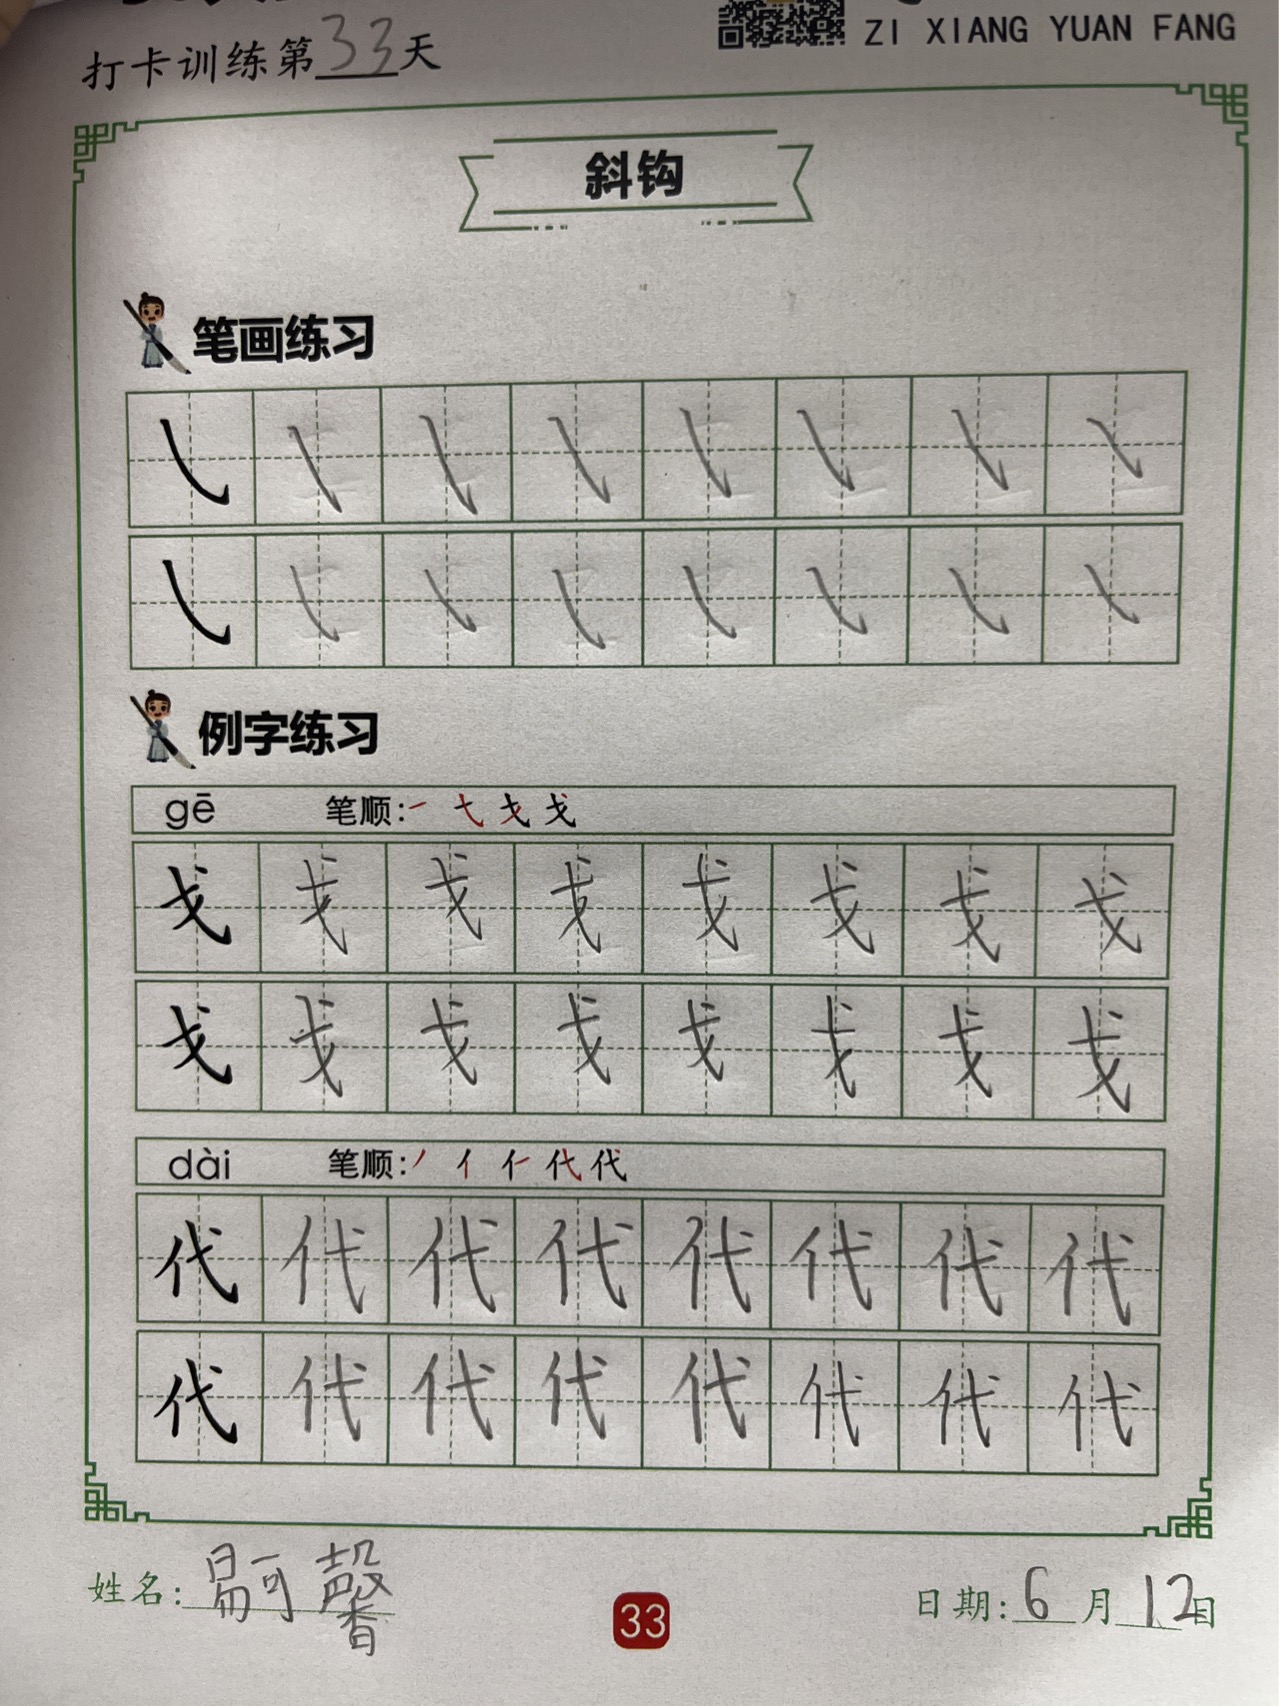 打卡训练第33天
ZI XIANG YUAN FANG
斜钩
笔画练习
例字练习
gē 笔顺:
戈 戈 戈 戈 戈 戈 戈 戈
戈 戈 戈 戈 戈 戈 戈 戈
dài 笔顺:
代 代 代 代 代 代 代 代
代 代 代 代 代 代 代 代
姓名: 易可馨
33
日期: 6月12日